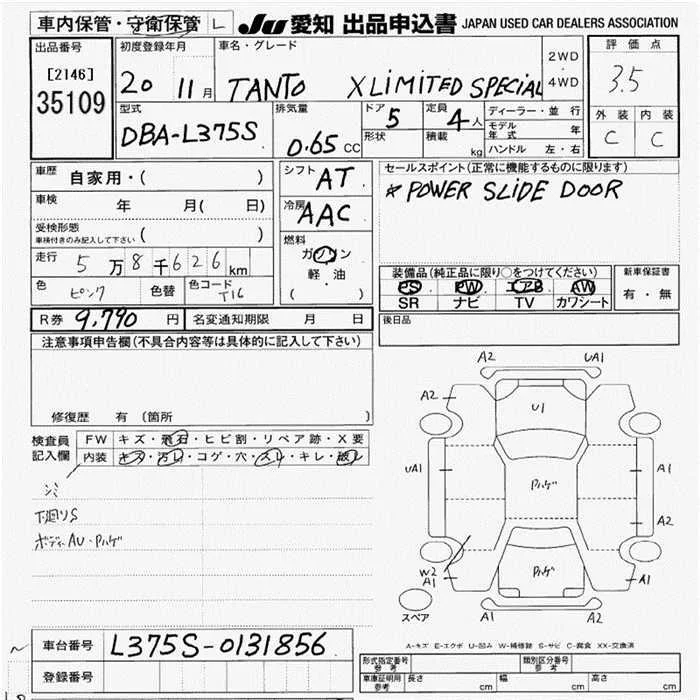 車内保管・守衛保管 L JU 愛知 出品申込書 JAPAN USED CAR DEALERS ASSOCIATION
出品番号 初度登録年月 車名・グレード 2WD ・ 4WD 評価点
[2146] 20 11月 TANTO X LIMITED SPECIAL 3.5
35109 型式 排気量 ドア 5 定員 4人 ディーラー・並行 外装 内装
DBA-L375S 0.65 CC 形状 積載 kg モデル年式 年 C C
ハンドル 左・右
車歴 自家用・( ) シフト AT セールスポイント(正常に機能するものに限ります)
車検 年 月( 日) 冷房 AAC ☆POWER SLIDE DOOR
受検形態 車検付きのみ記入して下さい ( ) 燃料
走行 5万8千626km ガソリン
軽・油
( )
装備品(純正品に限り○をつけてください) 新車保証書
色 ピンク 色替 色コード T16 PS PW エアB AW 有・無
SR ナビ TV カワシート
R券 9,790円 名変通知期限 月 日 後日品
注意事項申告欄(不具合内容等は具体的に記入して下さい)
修復歴 有 (箇所 )
検査員記入欄 FW キズ・飛石・ヒビ割・リペア跡・X要
内装 キズ・汚れ・コゲ・穴・スレ・キレ・破レ
シミ
下廻りS
ボディーAU・Pハゲ
A2 UA1
A2 U1
UA1 Pハゲ A1
A2
W2 A1 Pハゲ A1
スペア A1 A2
A-キズ E-エクボ U-凹み W-補修跡 S-サビ C-腐食 XX-交換済
車台番号 L375S-0131856
登録番号
形式指定番号 参考 類別区分番号 参考
車庫証明用 参考 長さ cm 幅 cm 高さ cm